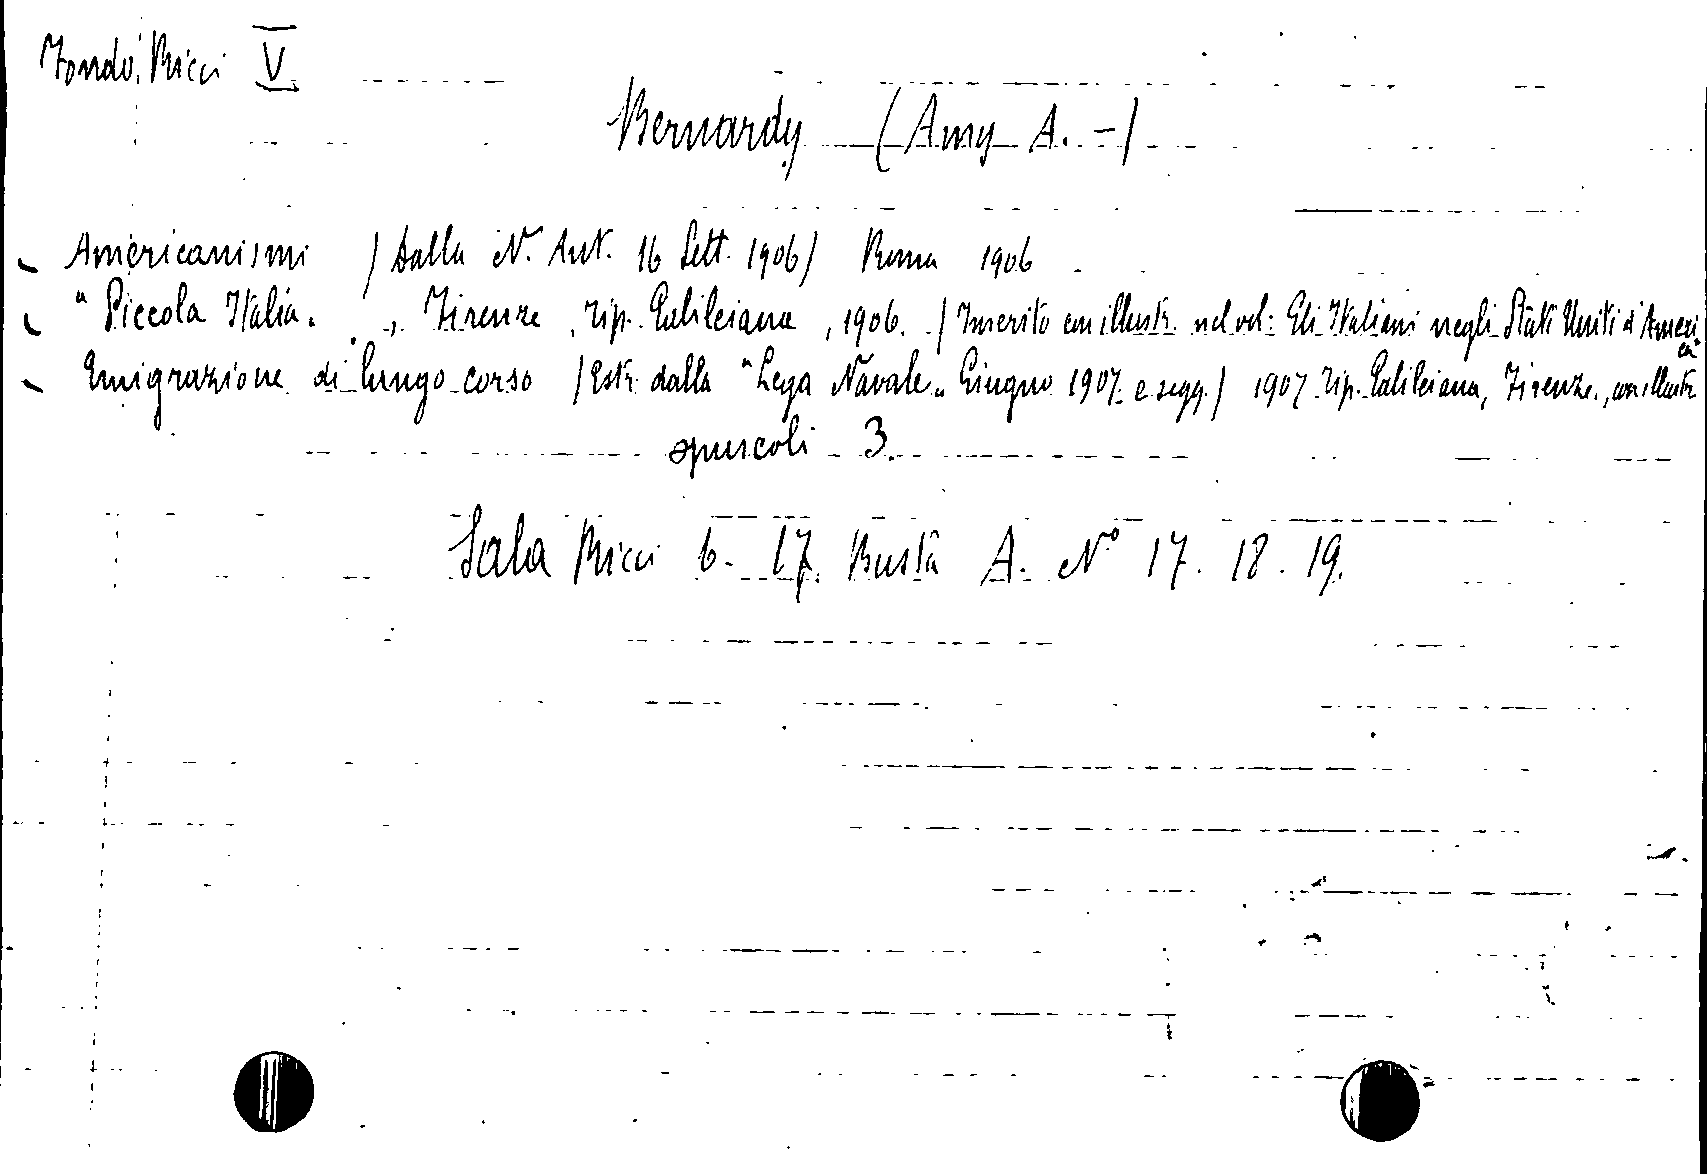 Fondo Ricci V
Bernardy (Amy A. -)
- Americanismi (Dalla N. Ant. 16 Sett. 1906) Roma 1906
- "Piccola Italia. „ Firenze, Tip. Galileiana, 1906. (Inserito con illustr. nel vol: Gli Italiani negli Stati Uniti d'America"
- Emigrazione di lungo corso (Estr. dalla "Lega Navale„ Giugno 1907. e segg.) 1907 Tip. Galileiana, Firenze., con illustr.
opuscoli 3.
Sala Ricci 6. 17. Busta A. N° 17. 18. 19.